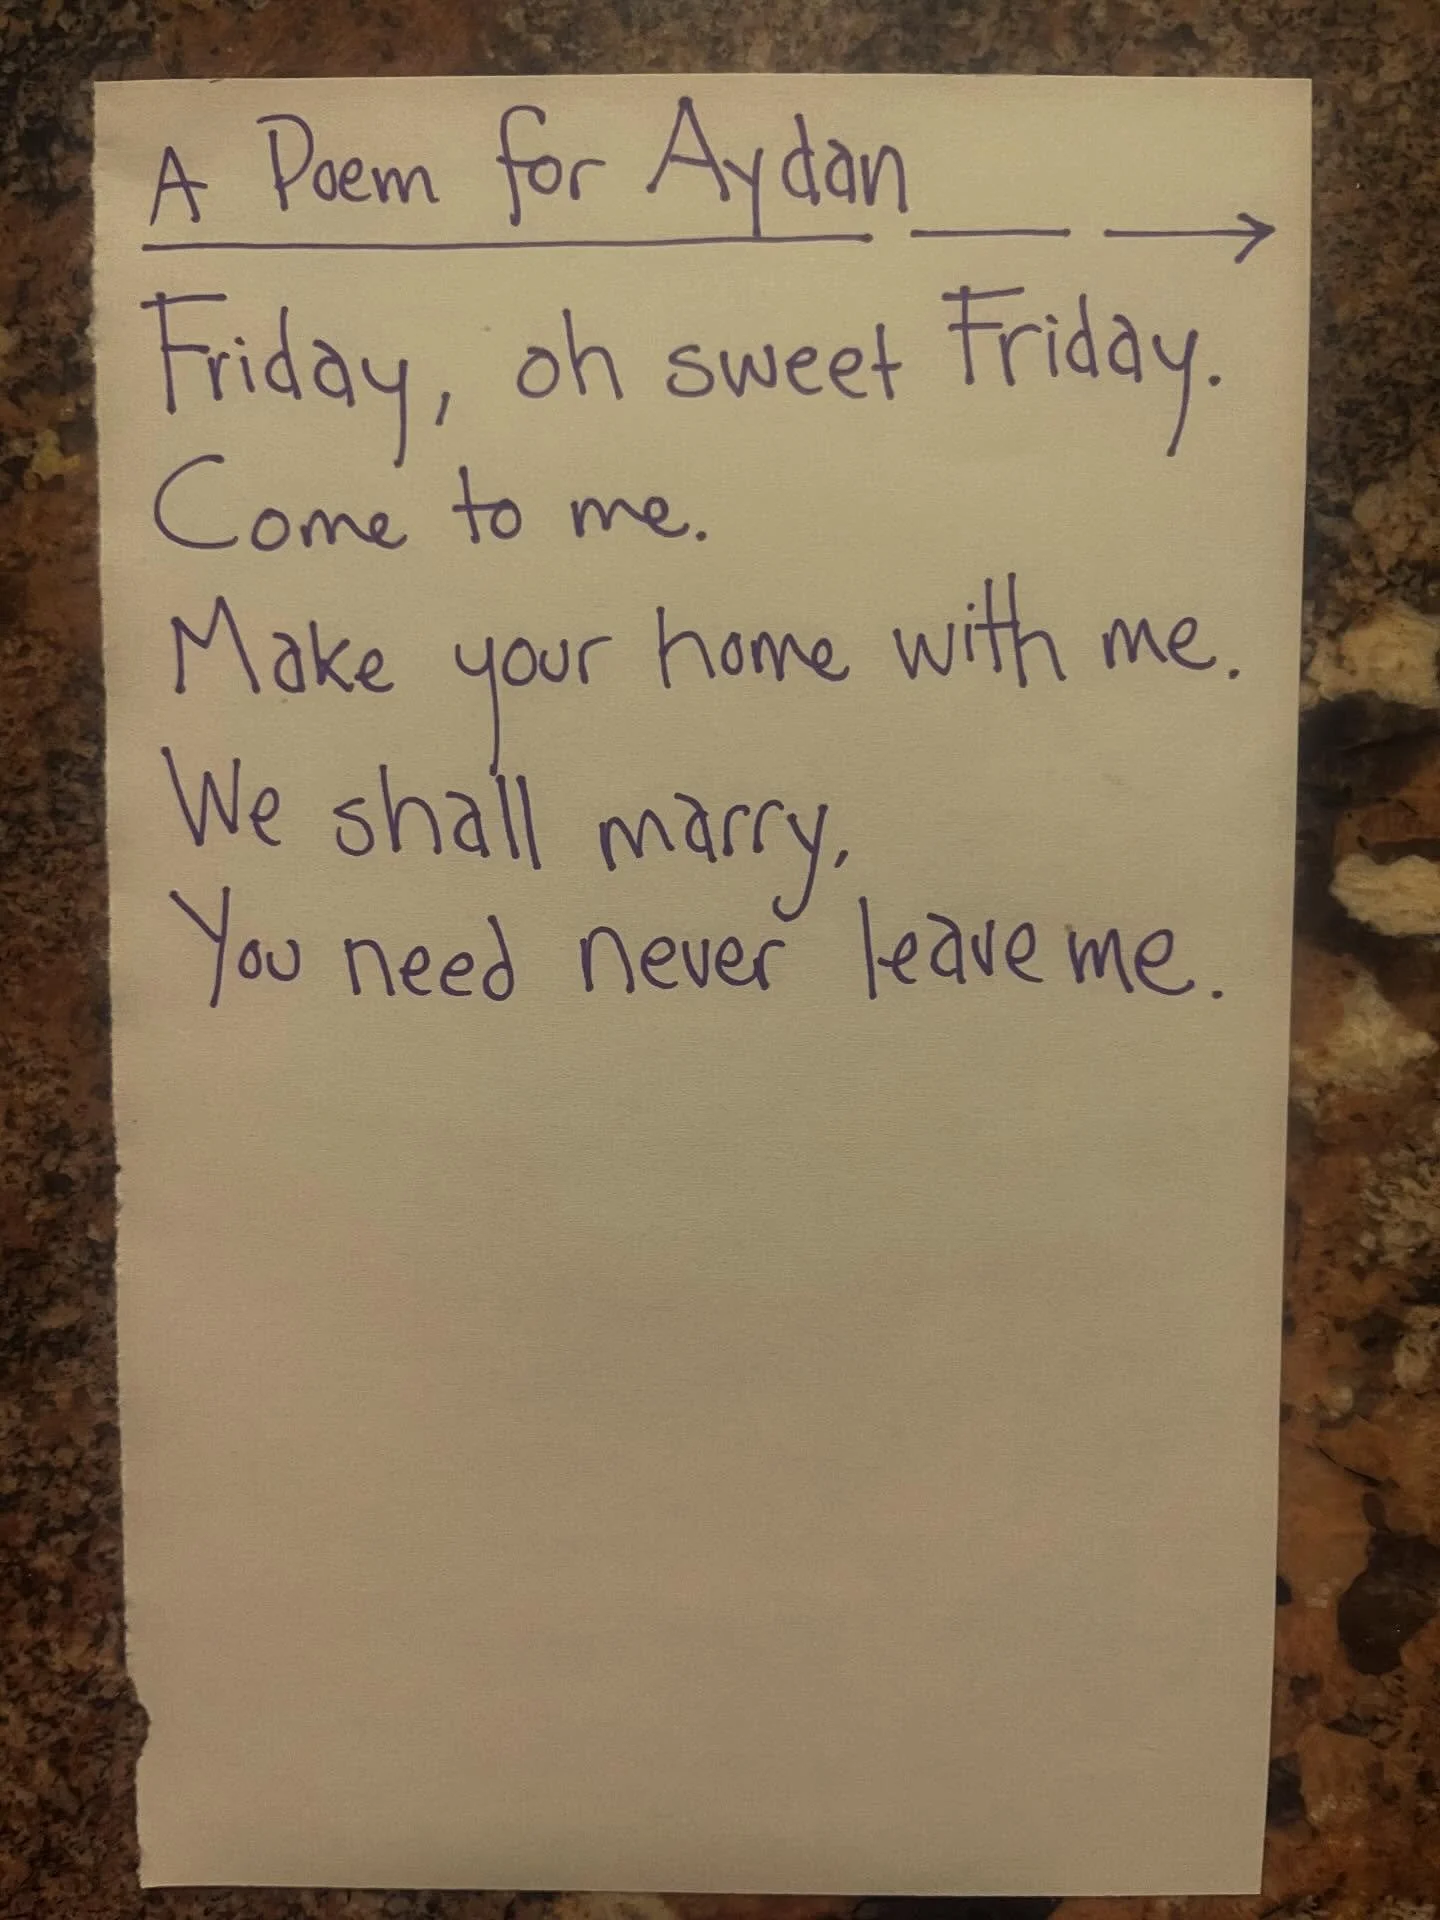 A Poem for Aydan
Friday, oh sweet Friday.
Come to me.
Make your home with me.
We shall marry,
You need never leave me.